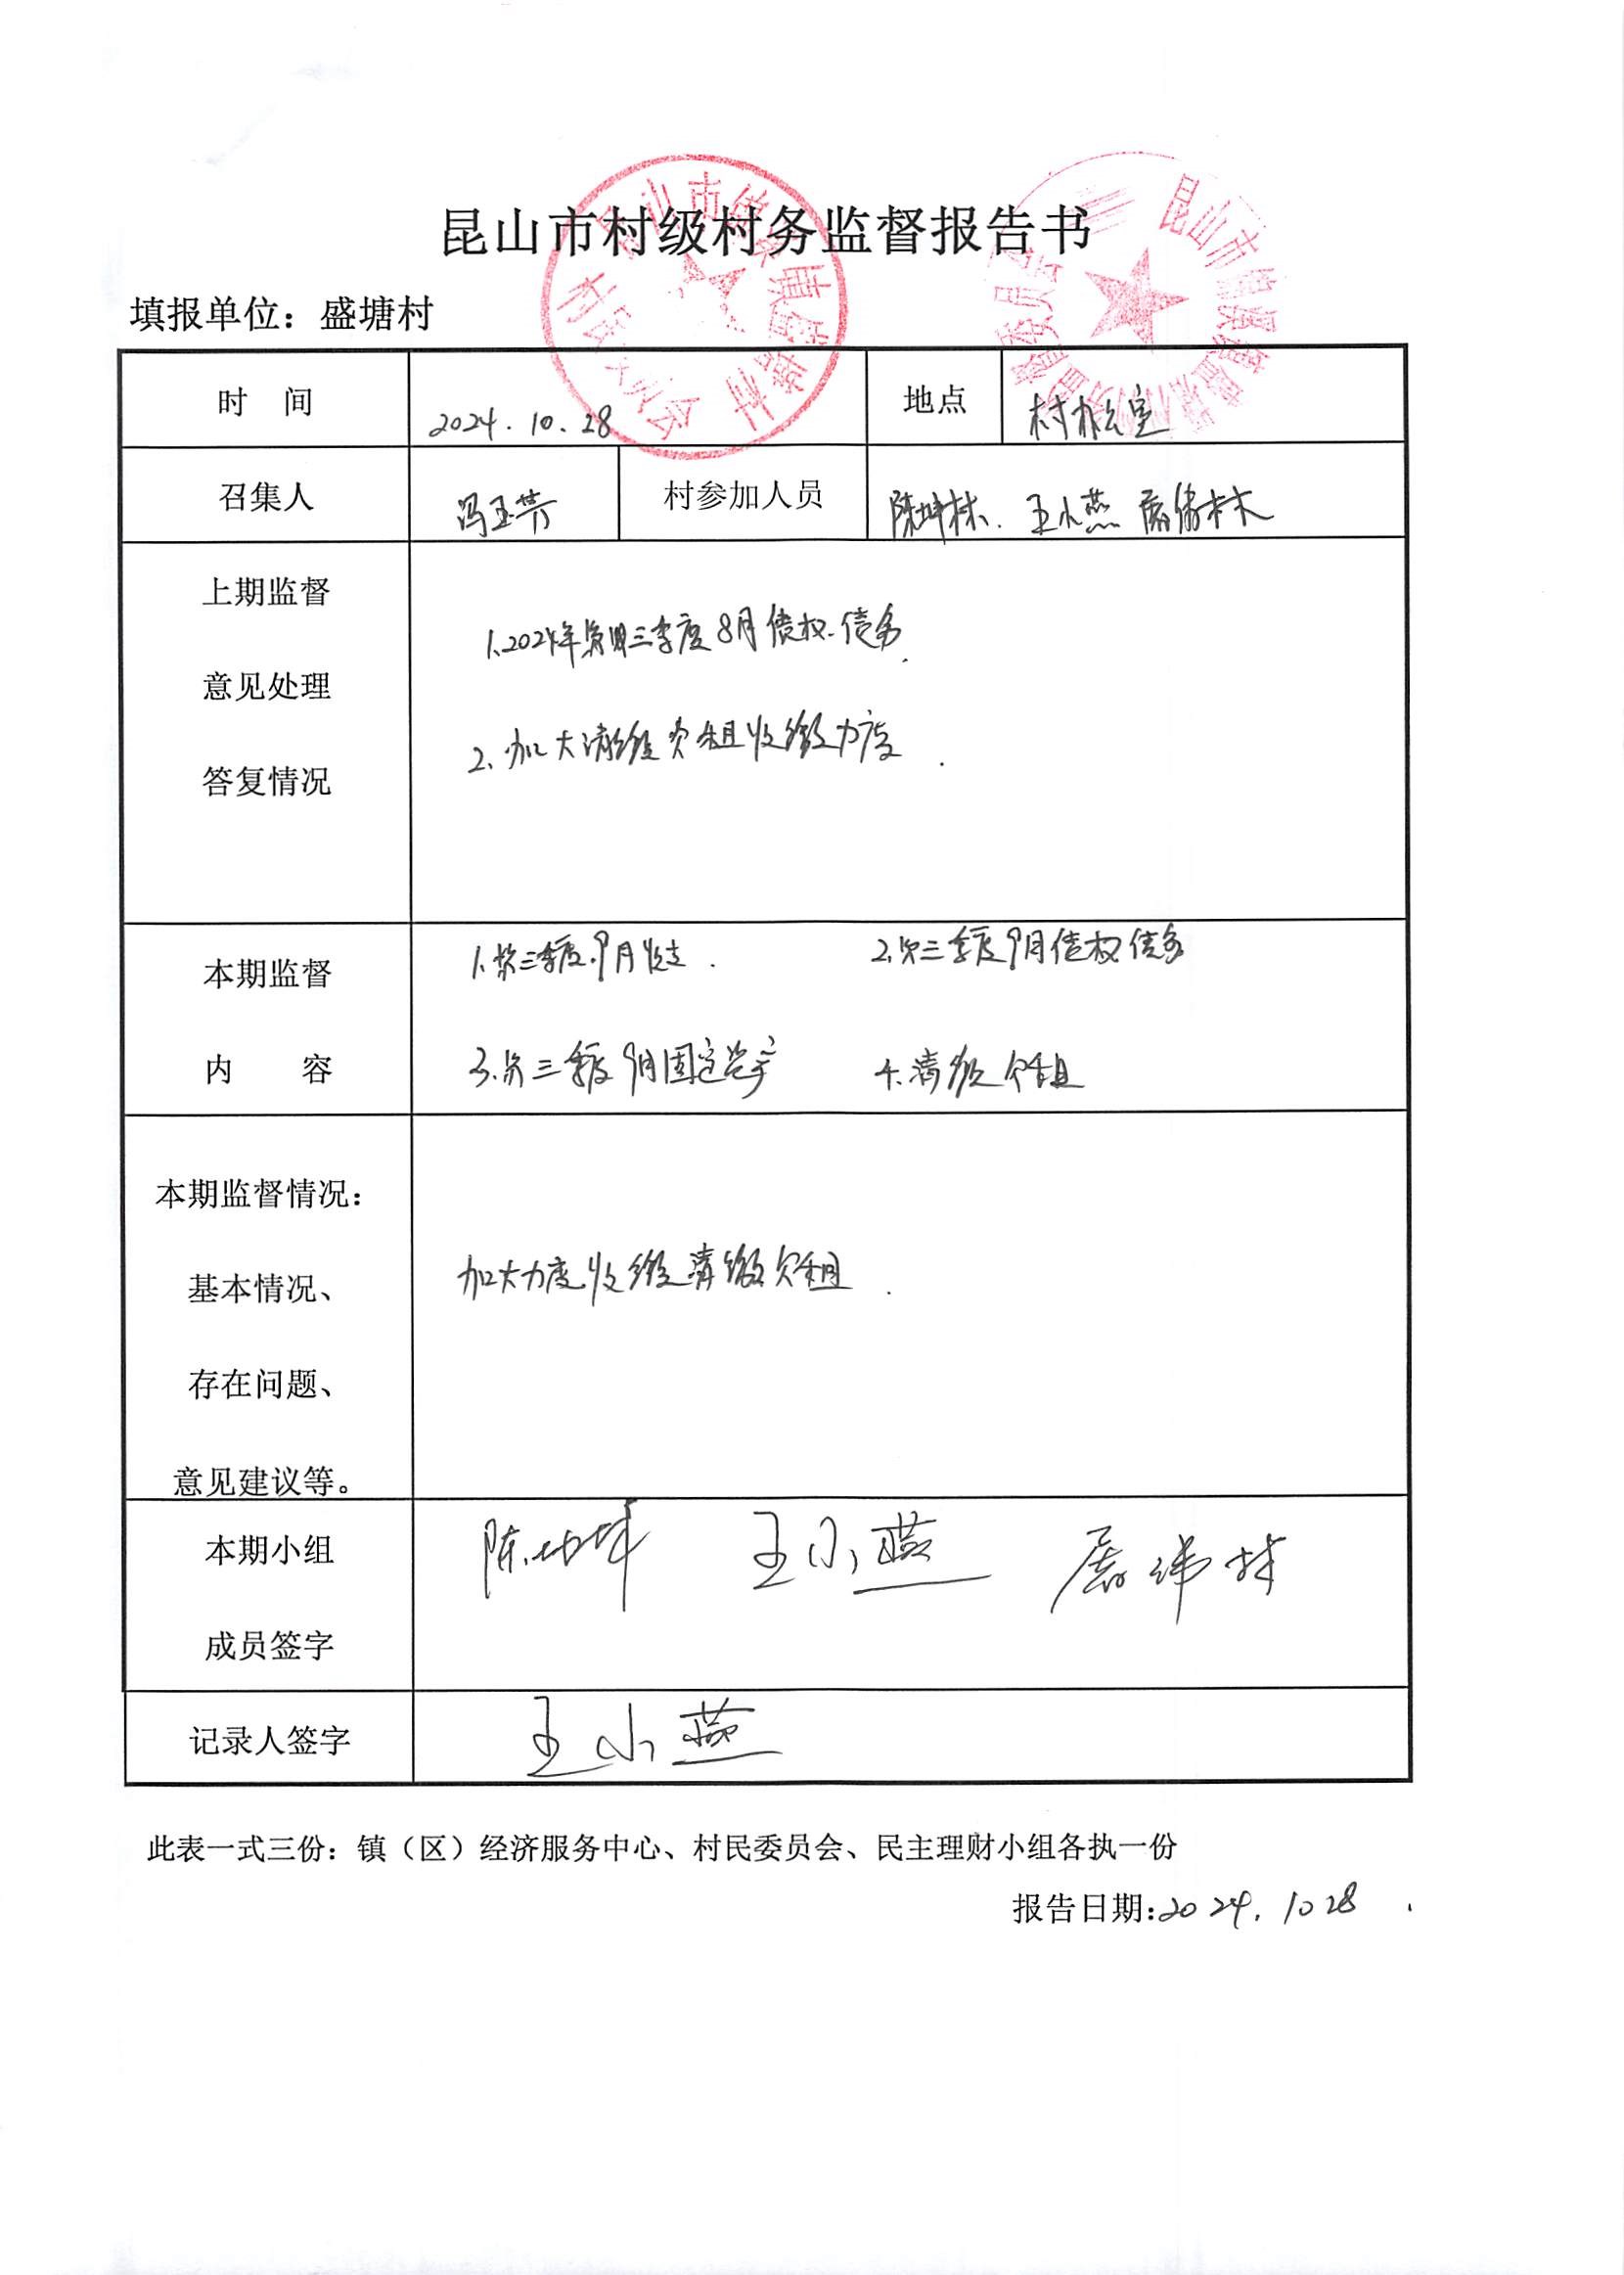 昆山市村级村务监督报告书
填报单位：盛塘村
时 间 2024.10.28 地点 村办公室
召集人 冯玉芳 村参加人员 陈坤林、王小燕
上期监督
意见处理
答复情况
1、2024年第三季度8月债权、债务.
2、加大清缴欠租收缴力度.
本期监督
内 容
1、第三季度9月收支. 2、第三季度9月债权债务
3、第三季度9月固定资产 4、清缴欠租
本期监督情况：
基本情况、
存在问题、
意见建议等。
加大力度收缴清缴欠租.
本期小组
成员签字
王小燕
记录人签字 王小燕
此表一式三份：镇（区）经济服务中心、村民委员会、民主理财小组各执一份
报告日期：2024.10 28